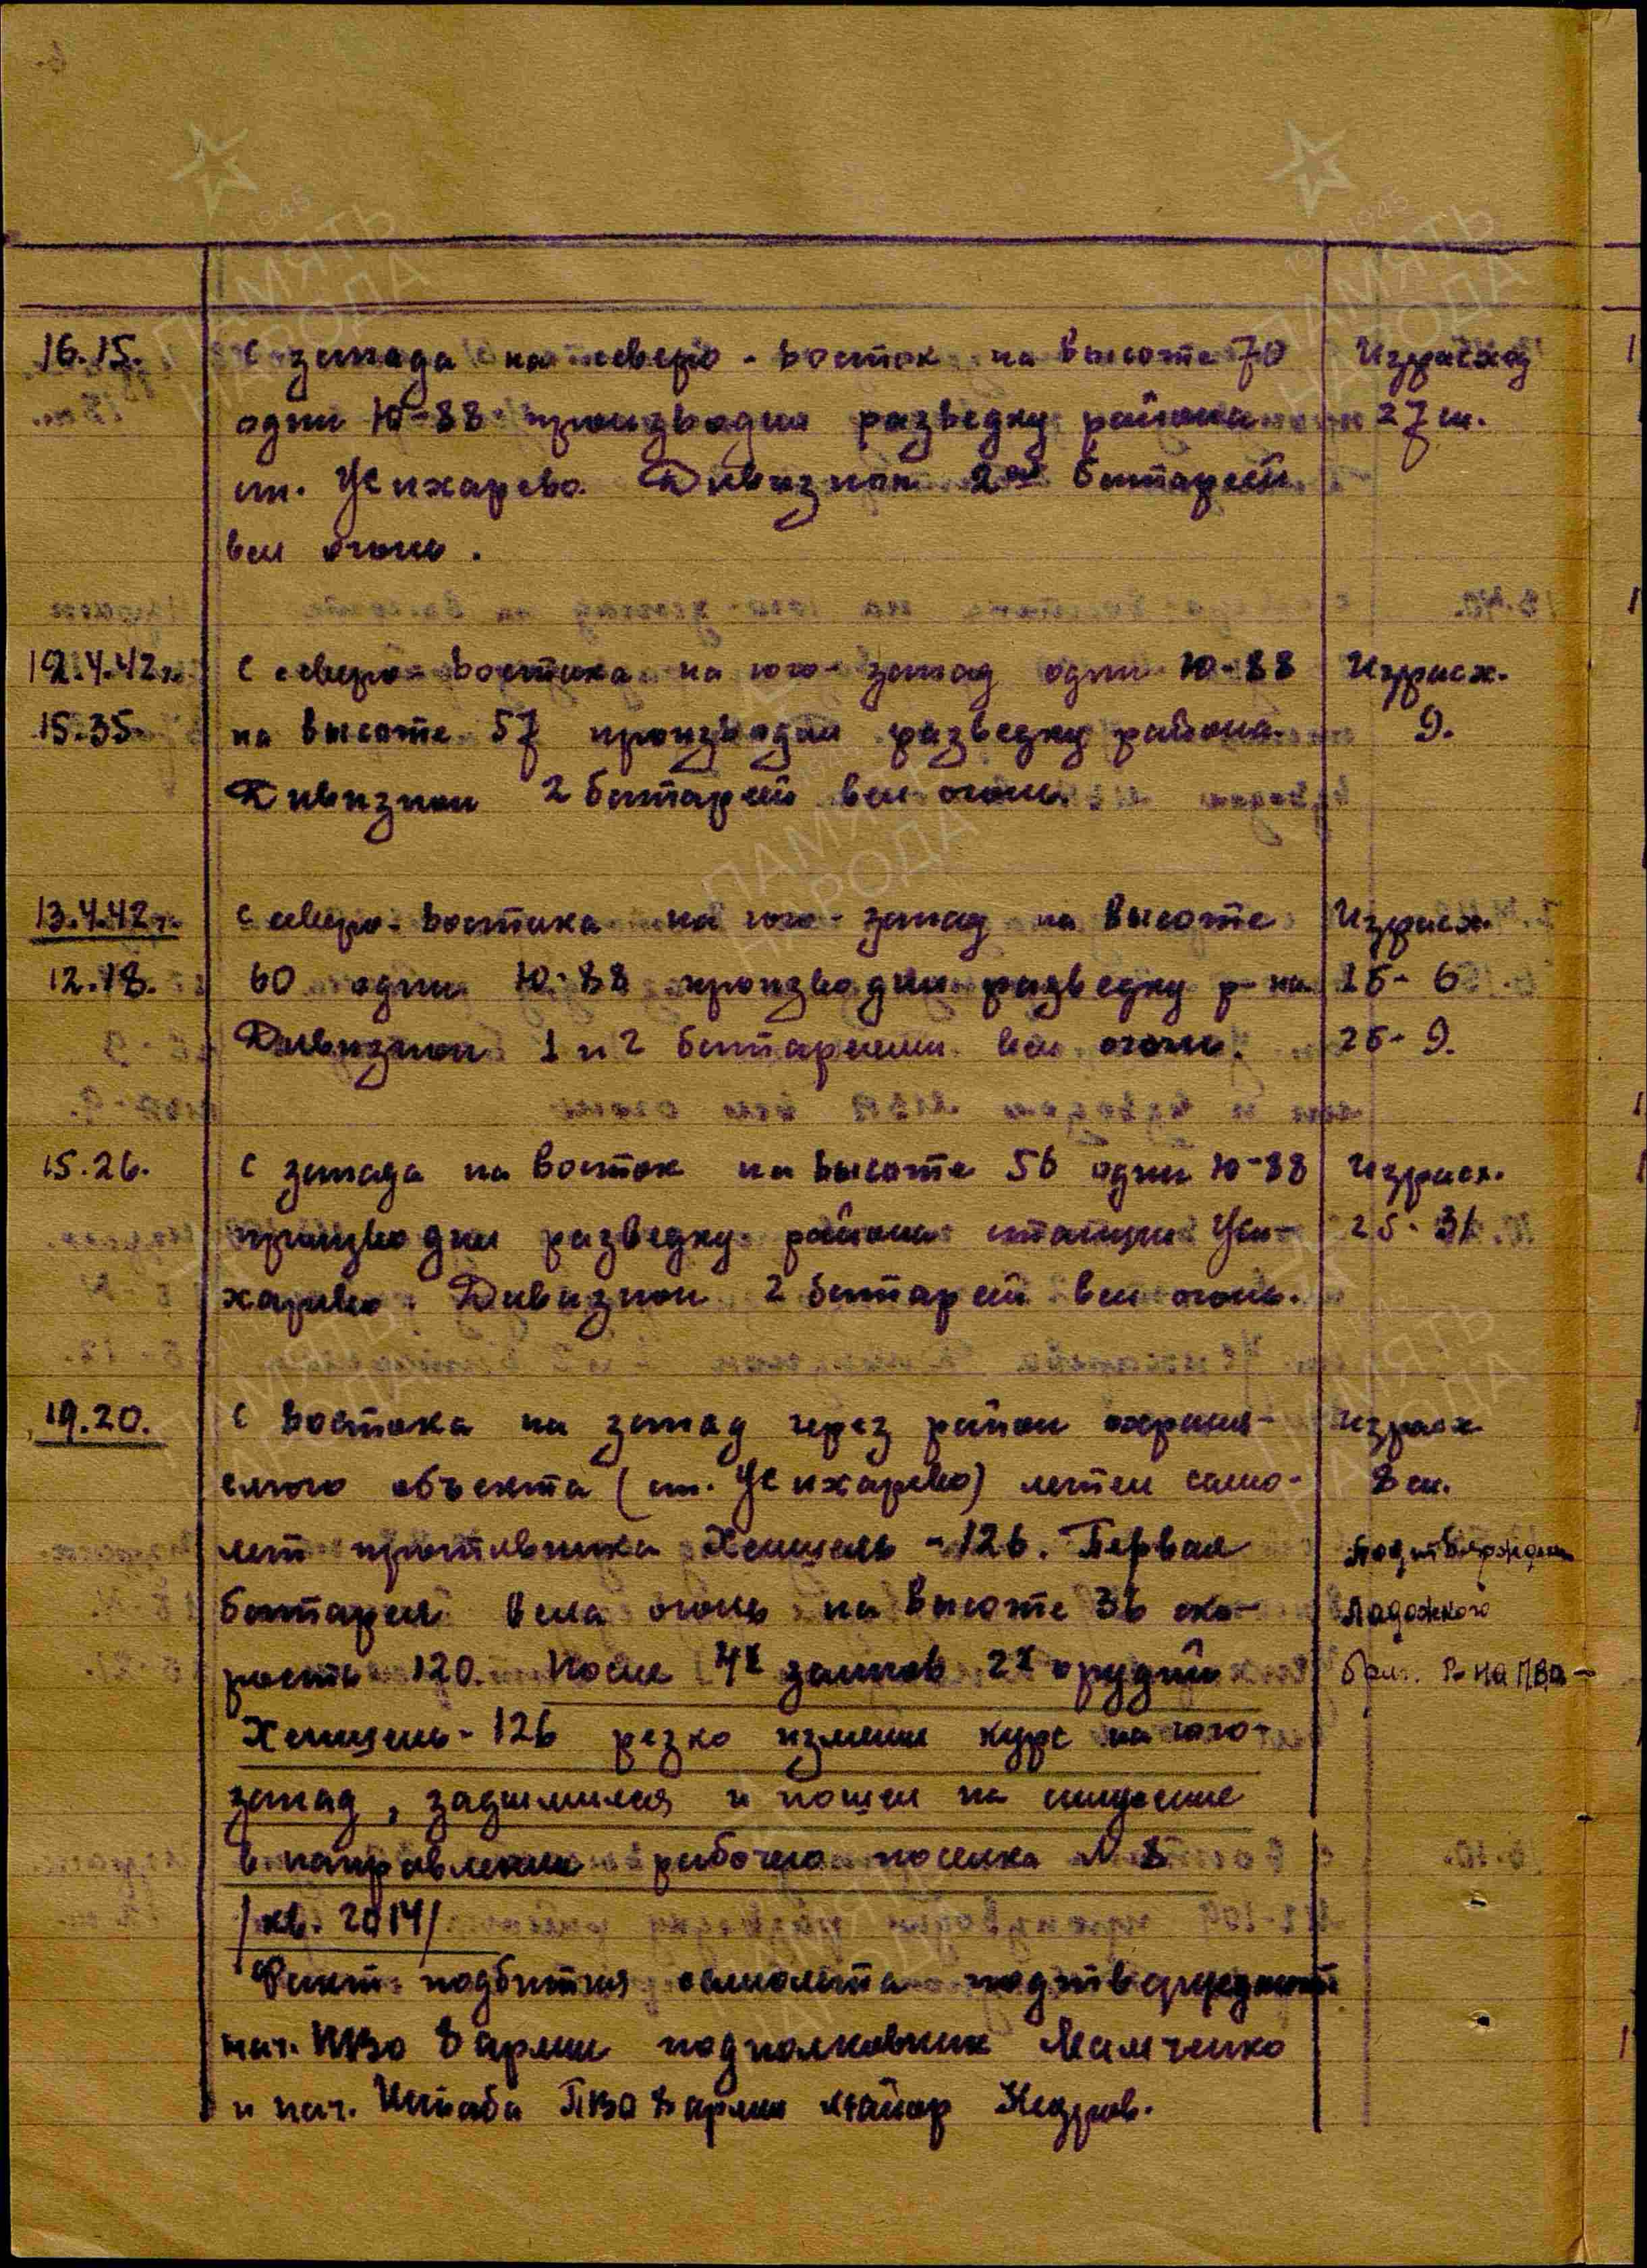 16.15. с запада на северо-восток на высоте 70 Израсход
один Ю-88 производил разведку района 27 ш.
ст. Жихарево. Дивизион 2ой батареей
вел огонь.
12.4.42г. с северо-востока на юго-запад один Ю-88 Израсх.
15.35. на высоте 57 производил разведку района. 9.
Дивизион 2 батареей вел огонь.
13.4.42г. с северо-востока на юго-запад на высоте Израсх.
12.18. 60 один Ю-88 производил разведку р-на 1б- 6
Дивизион 1 и 2 батареями вел огонь. 2б- 9.
15.26. с запада на восток на высоте 56 один Ю-88 Израсх.
производил разведку района станции Жи-
харево. Дивизион 2 батареей вел огонь. 2б- 31
19.20. с востока на запад через район охраня- Израсх
емого объекта (ст. Жихарево) летел само- 8 сн.
лет противника Хеншель-126. Первая Подтверждение
батарея вела огонь на высоте 36 ско- Ладожского
рость 120. После 4х залпов 2х орудий р-на ПВО
Хеншель-126 резко изменил курс на юго-
запад, задымился и пошел на снижение
в направлении рабочего поселка № 8
/кв. 2014/
Факт подбития самолета подтверждают
нач. ПВО 8 армии подполковник Мамченко
и нач. Штаба ПВО 8 армии майор Кедров.
ПАМЯТЬ
НАРОДА